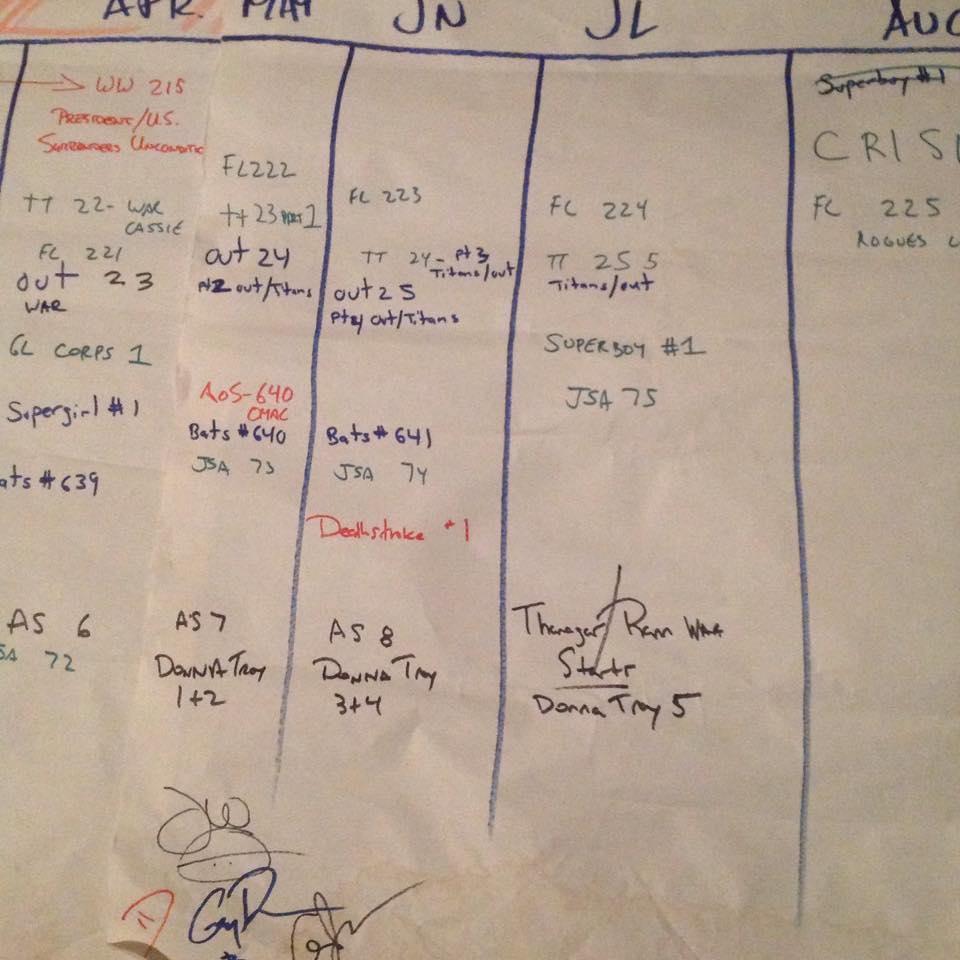 APR.
MAY
JN
JL
AUG
WW 215
PRESIDENT/U.S.
SURRENDERS UNCONDITIO
TT 22- WAR
CASSIE
FL 221
OUT 23
WAR
GL CORPS 1
Supergirl #1
ats #639
AS 6
SA 72
FL222
TT 23 PART 1
OUT 24
Pt2 out/Titans
AoS-640
OMAC
Bats #640
JSA 73
AS 7
DONNA TROY
1+2
FL 223
TT 24- Pt 3
Titans/out
OUT 25
Pt4 out/Titans
Bats #641
JSA 74
Deathstroke #1
AS 8
DONNA TROY
3+4
FL 224
TT 25 5
Titans/out
SUPERBOY #1
JSA 75
Thanagar/Rann WAR
Starts
Donna Troy 5
Superboy #1
CRISI
FL 225
ROGUES